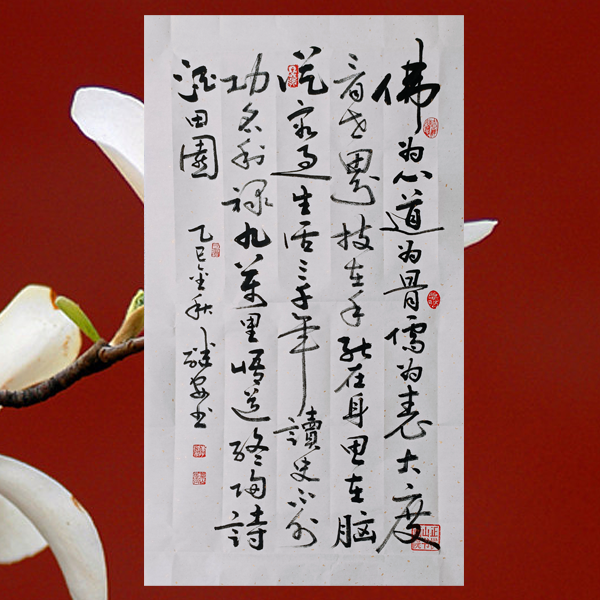 佛为心道为骨儒为表大度
看世界技在手能在身思在脑
從容过生活三千年讀史不外
功名利禄九萬里悟道终归詩
酒田園
乙巳金秋 书